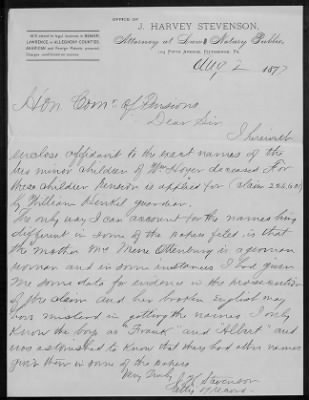 OFFICE OF
J. HARVEY STEVENSON,
Attorney at Law & Notary Public,
Will attend to legal business in BEAVER,
LAWRENCE or ALLEGHENY COUNTIES.
AMERICAN and Foreign Patents procured.
Aug 2 1897
Hon Com' of Pensions
Dear Sir
I herewith
enclose affidavit to the exact names of the
two minor children of Wm Hoyer deceased For
these children Pension is applied for (claim
by William Henkel guardian.
The only way I can account for the names being
different in some of the papers filed is that
the mother Mrs Mene Ottenburg is a german
woman and in some instances I had given
me some data for evidence in the prosecution
of the claim and her broken English may
have mislead in getting the names I only
know the boys as "Frank" and "Albert" and
was astonished to know that they had other names
given them in some of the papers
Very Truly
J. H. Stevenson
Atty of record